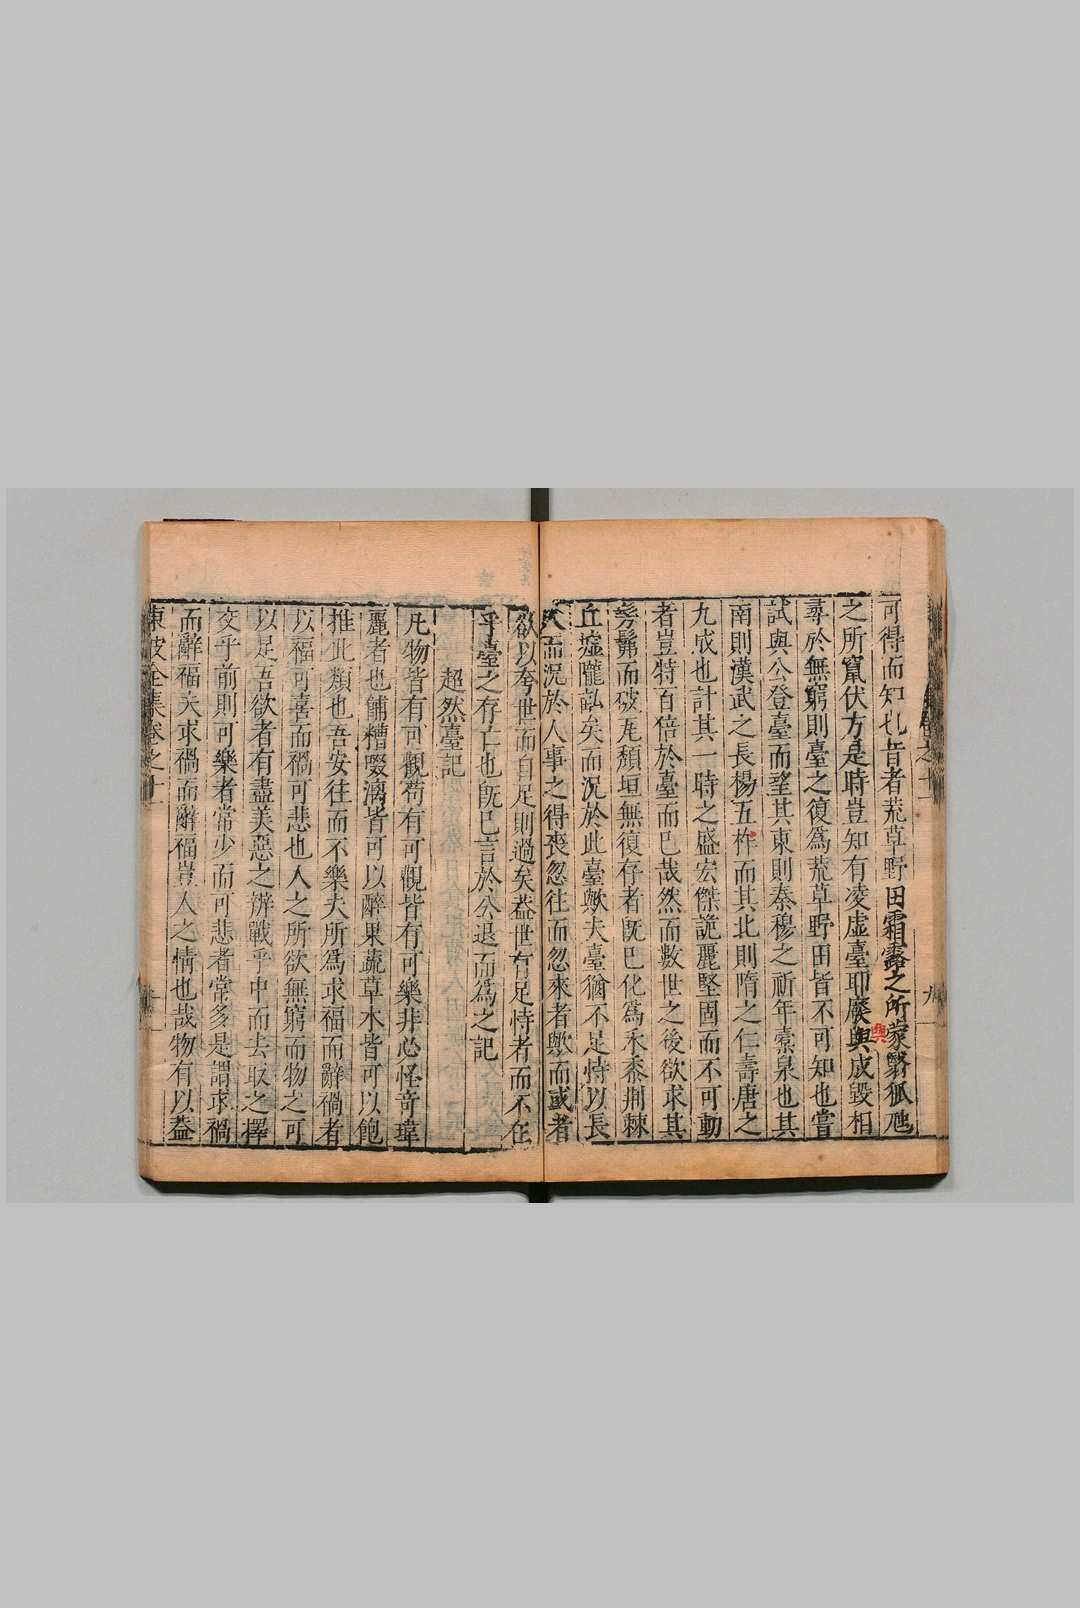 可得而知也昔者荒草野田霜露之所蒙翳狐虺
之所竄伏方是時豈知有凌虛臺耶廢興成毀相
尋於無窮則臺之復爲荒草野田皆不可知也嘗
試與公登臺而望其東則秦穆之祈年橐泉也其
南則漢武之長楊五柞而其北則隋之仁壽唐之
九成也計其一時之盛宏傑詭麗堅固而不可動
者豈特百倍於臺而已哉然而數世之後欲求其
髣髴而破瓦頹垣無復存者旣已化爲禾黍荆棘
丘墟隴畝矣而況於此臺歟夫臺猶不足恃以長
久而況於人事之得喪忽往而忽來者歟而或者
欲以夸世而自足則過矣葢世有足恃者而不在
乎臺之存亡也旣已言於公退而爲之記
超然臺記
凡物皆有可觀苟有可觀皆有可樂非必怪奇瑋
麗者也餔糟啜漓皆可以醉果蔬草木皆可以飽
推此類也吾安往而不樂夫所爲求福而辭禍者
以福可喜而禍可悲也人之所欲無窮而物之可
以足吾欲者有盡美惡之辨戰乎中而去取之擇
交乎前則可樂者常少而可悲者常多是謂求禍
而辭福夫求禍而辭福豈人之情也哉物有以葢
東坡全集卷之十一